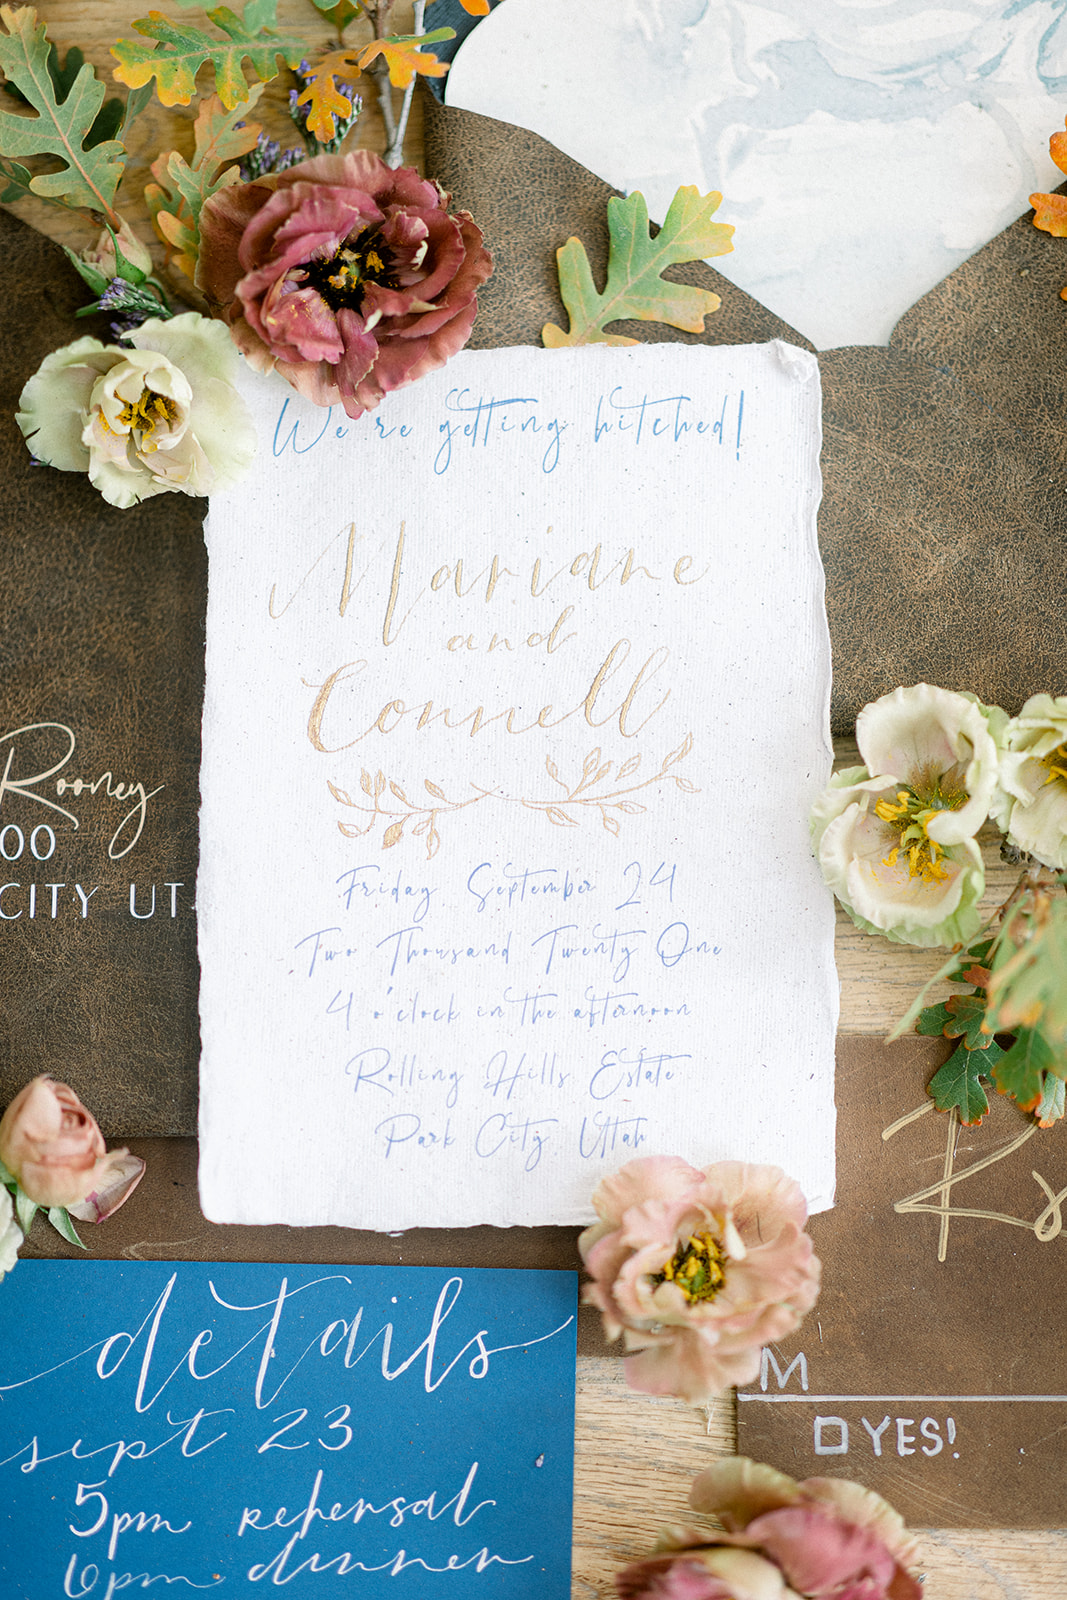 We're getting hitched!
Mariane
and
Connell
Friday September 24
Two Thousand Twenty One
4 o'clock in the afternoon
Rolling Hills Estate
Park City, Utah
Rooney
00
CITY UT
details
sept 23
5pm rehersal
6pm dinner
M
YES!